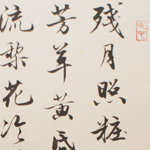 残月照粧
芳草黄昏
流梨花冷